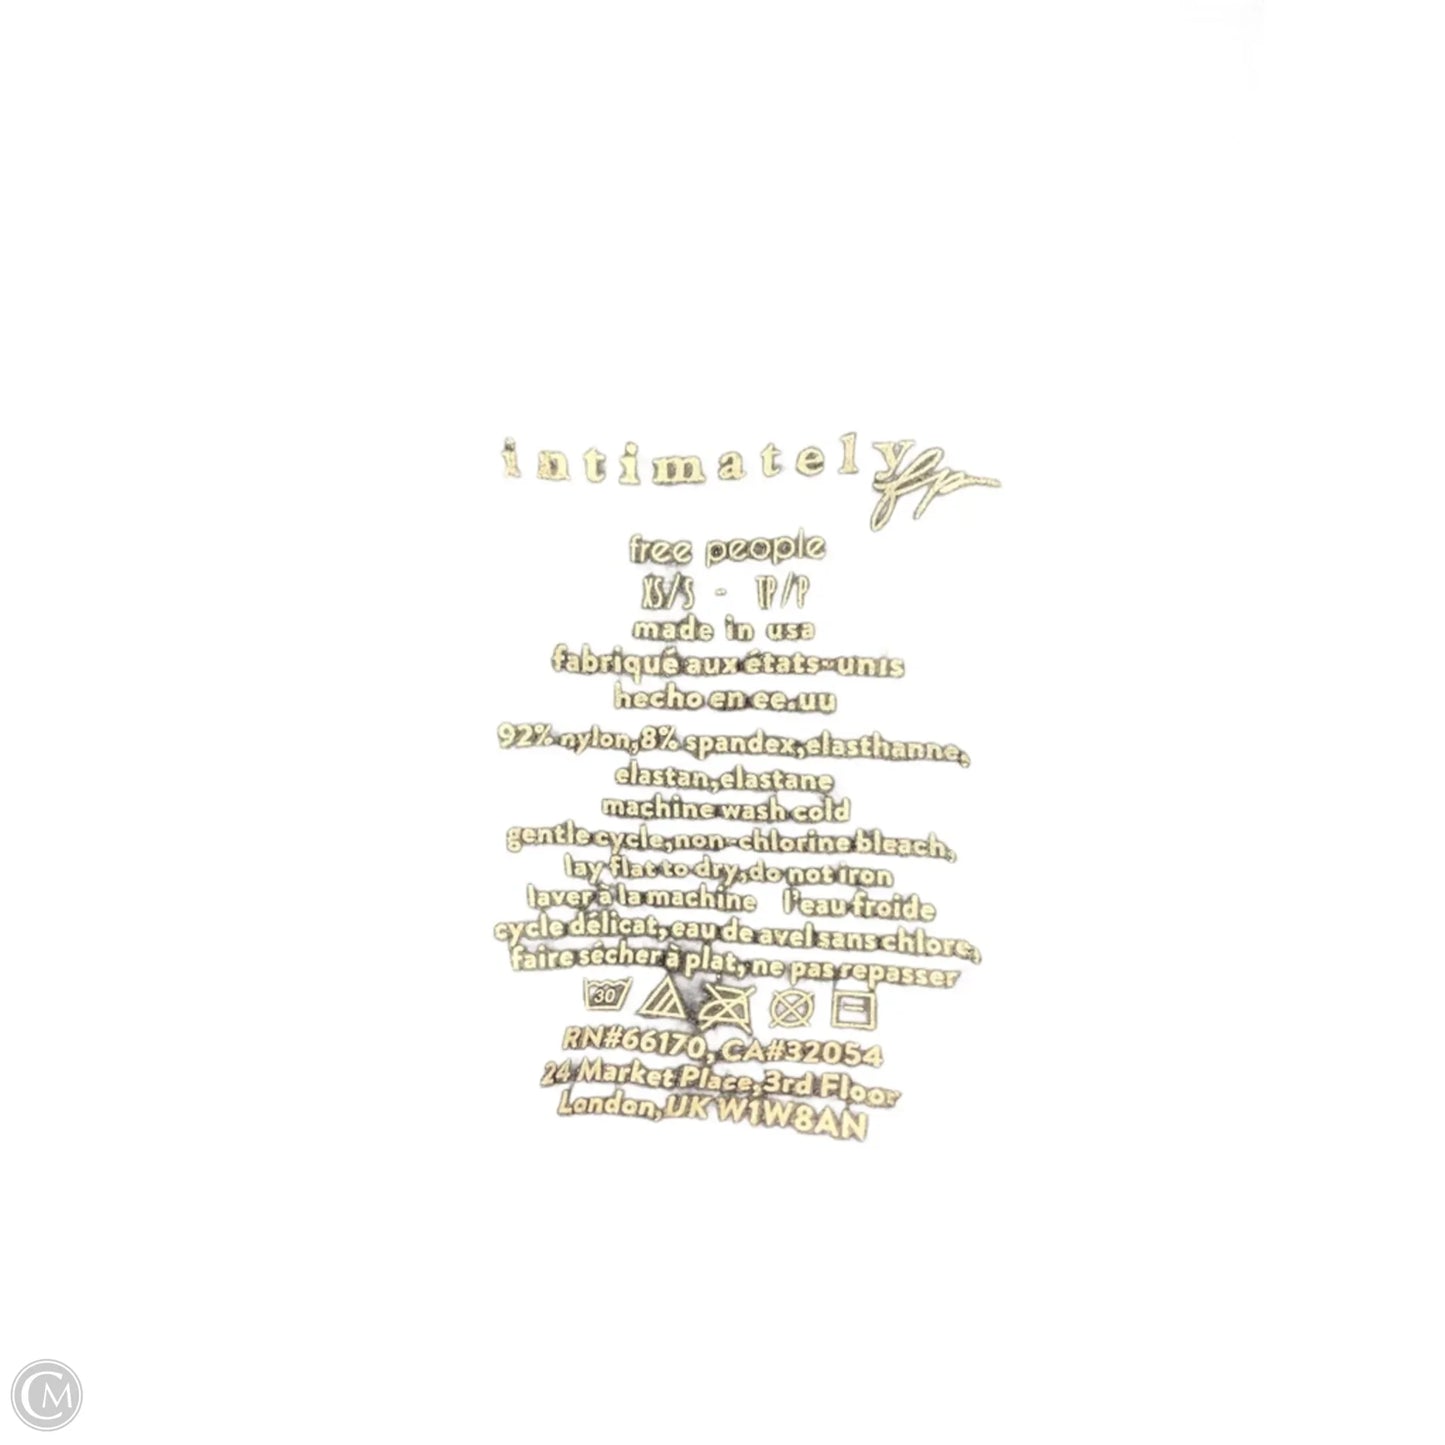 intimately fp
free people
XS/S - TP/P
made in usa
fabriqué aux états-unis
hecho en ee.uu
92% nylon,8% spandex,elasthanne,
elastan,elastane
machine wash cold
gentle cycle,non-chlorine bleach,
lay flat to dry,do not iron
laver à la machine l'eau froide
cycle délicat, eau de avel sans chlore,
faire sécher à plat, ne pas repasser
30
RN#66170, CA#32054
24 Market Place,3rd Floor
London,UK W1W8AN
CM